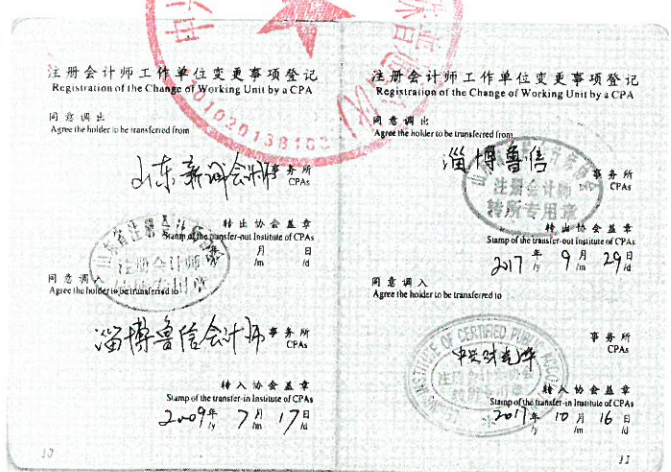 注册会计师工作单位变更事项登记
Registration of the Change of Working Unit by a CPA
同意调出
Agree the holder to be transferred from
山东新诚会计师事务所
CPAs
转出协会盖章
Stamp of the transfer-out Institute of CPAs
月 日
/y /m /d
同意调入
Agree the holder to be transferred to
淄博鲁信会计师事务所
CPAs
转入协会盖章
Stamp of the transfer-in Institute of CPAs
2009年 7月 17日
/y /m /d
10
注册会计师工作单位变更事项登记
Registration of the Change of Working Unit by a CPA
同意调出
Agree the holder to be transferred from
淄博鲁信 事务所
CPAs
注册会计师
转所专用章
转出协会盖章
Stamp of the transfer-out Institute of CPAs
2017年 9月 29日
/y /m /d
同意调入
Agree the holder to be transferred to
事务所
CPAs
中兴财光华
转入协会盖章
Stamp of the transfer-in Institute of CPAs
2017年 10月 16日
/y /m /d
11